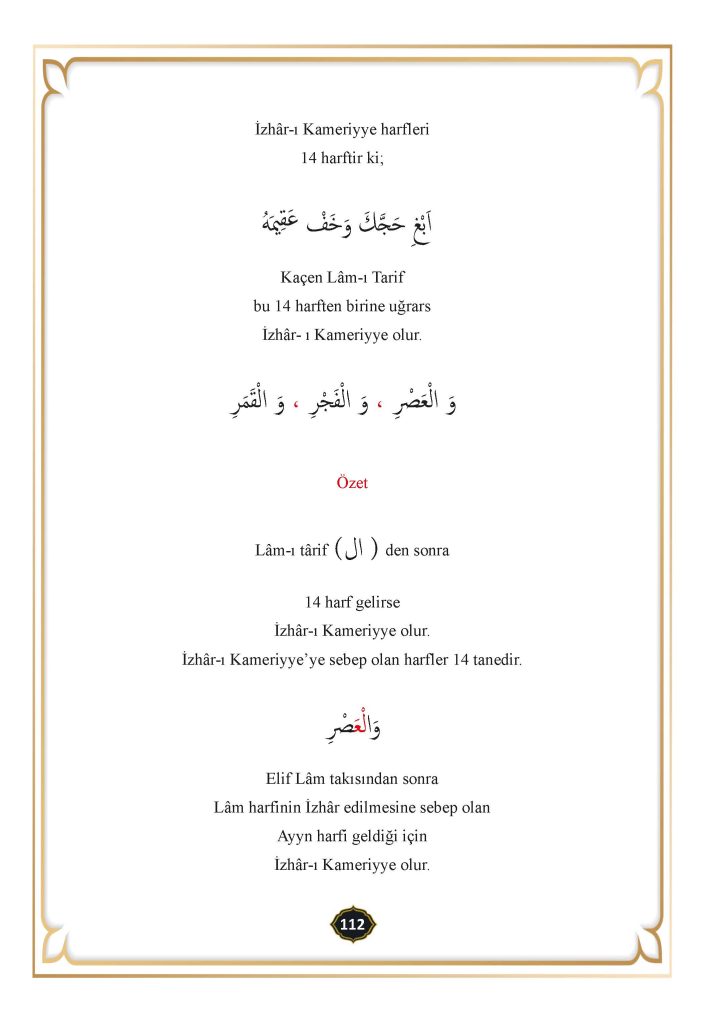 İzhâr-ı Kameriyye harfleri
14 harftir ki;
اَبْغِ حَجَّكَ وَخَفْ عَقِيمَهُ
Kaçen Lâm-ı Tarif
bu 14 harften birine uğrars
İzhâr- ı Kameriyye olur.
وَ الْعَصْرِ ، وَ الْفَجْرِ ، وَ الْقَمَرِ
Özet
Lâm-ı târif ( ال ) den sonra
14 harf gelirse
İzhâr-ı Kameriyye olur.
İzhâr-ı Kameriyye’ye sebep olan harfler 14 tanedir.
وَالْعَصْرِ
Elif Lâm takısından sonra
Lâm harfinin İzhâr edilmesine sebep olan
Ayyn harfi geldiği için
İzhâr-ı Kameriyye olur.
112